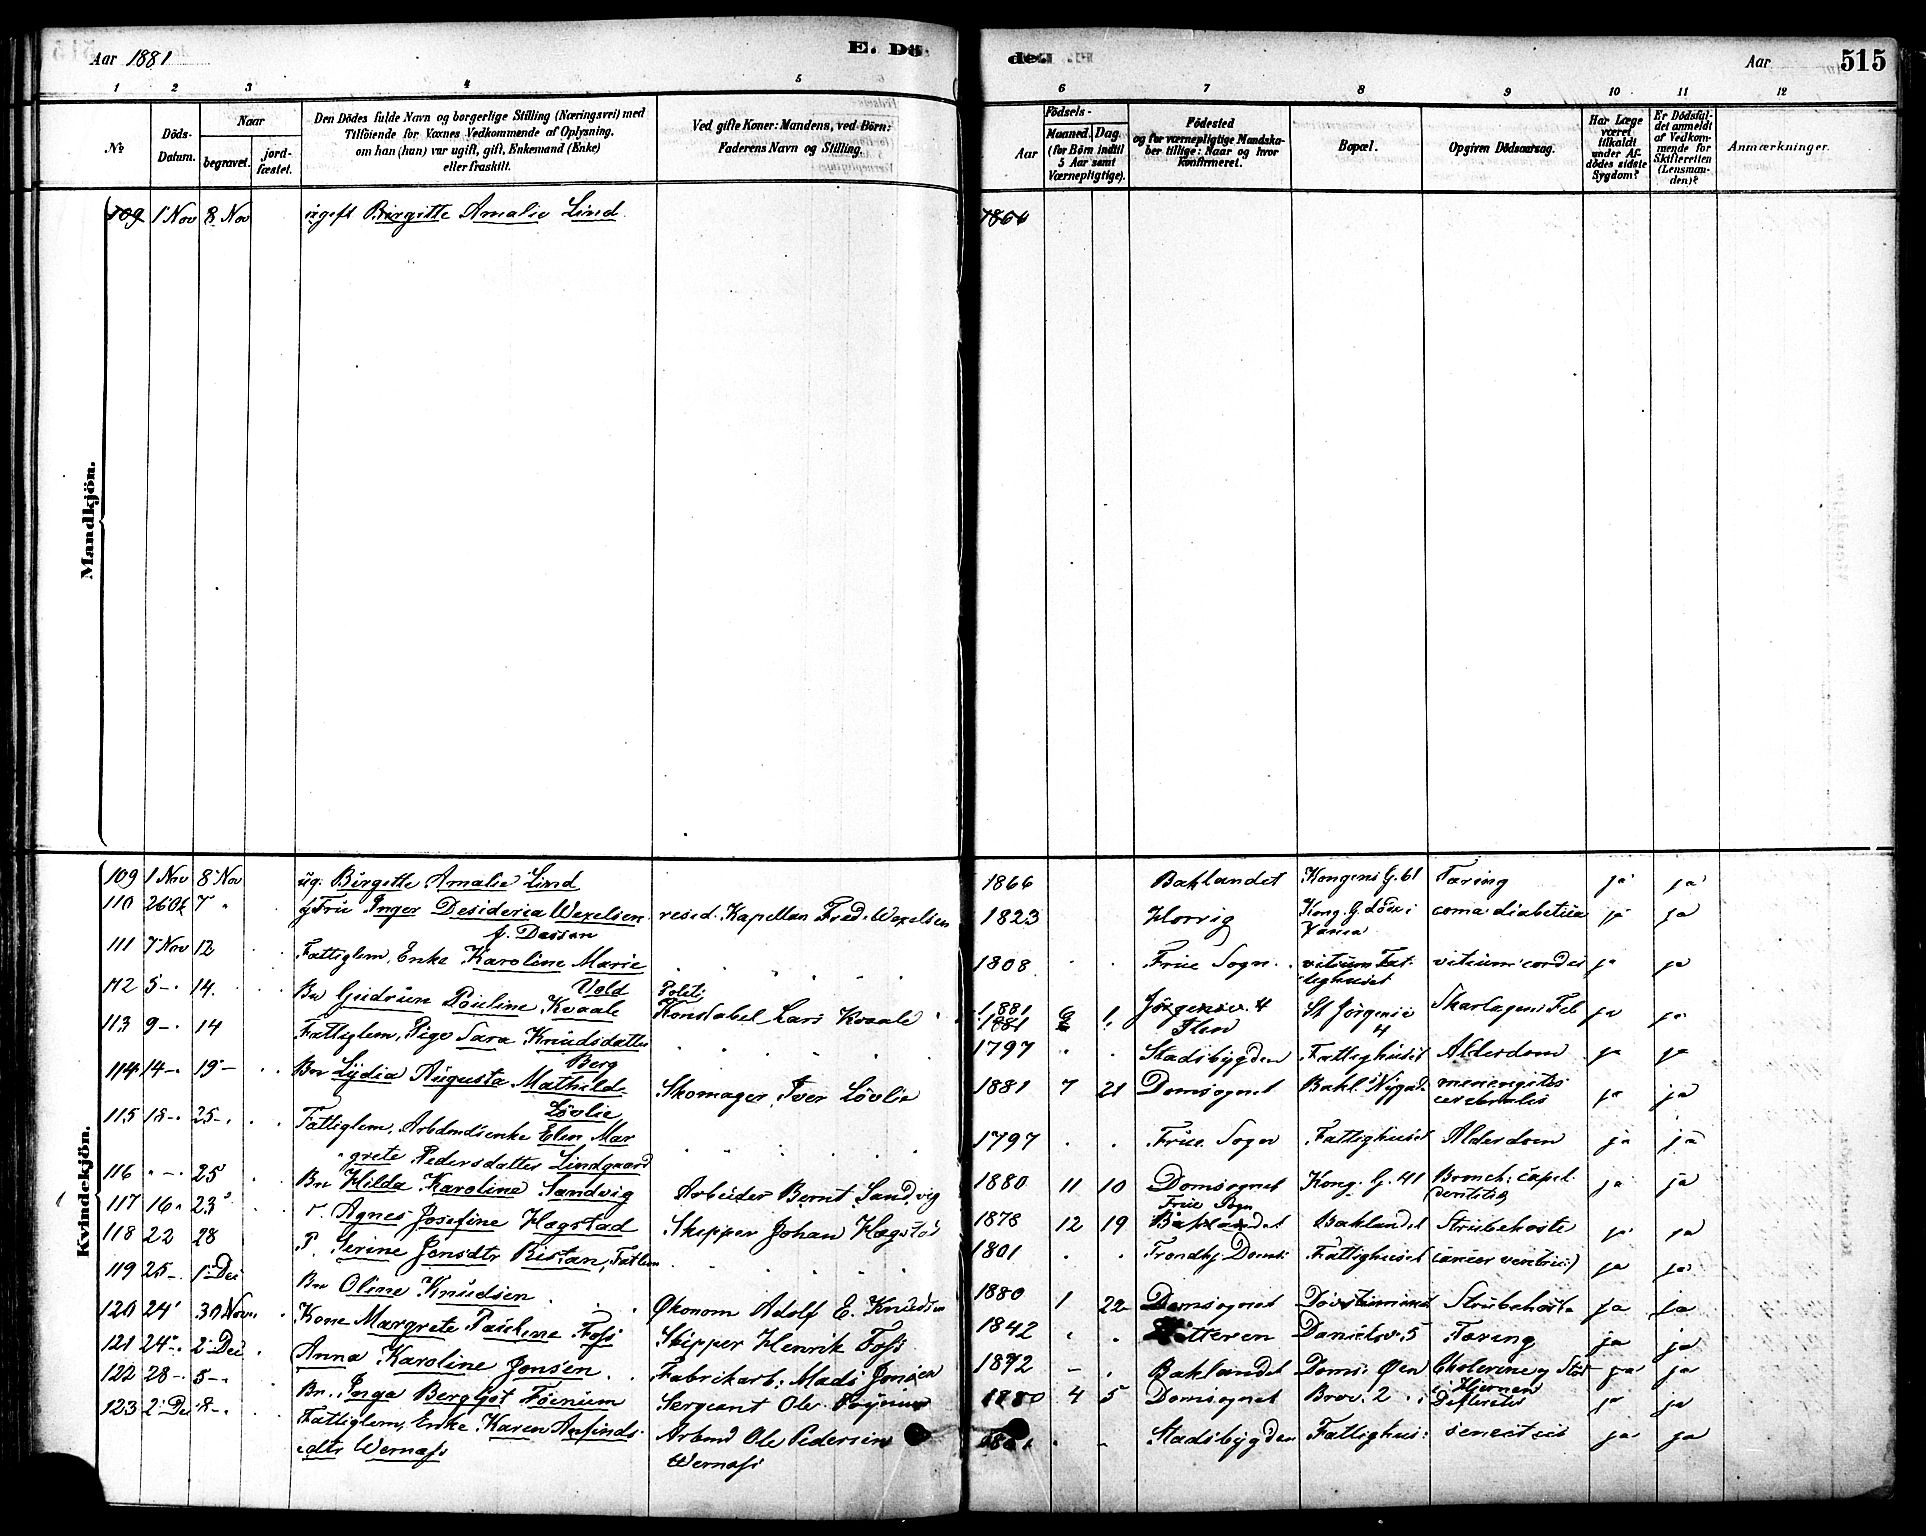 Aar 1881
E. Dö-
des
Aar
515
1 2 3 4 5 6 7 8 9 10 11 12
No
Döds-
Datum.
Naar
begravet.
jord-
fæstet.
Den Dödes fulde Navn og borgerlige Stilling (Næringsvei) med
Tilföiende for Voxnes Vedkommende af Oplysning,
om han (hun) var ugift, gift, Enkemand (Enke)
eller fraskilt.
Ved gifte Koner: Mandens, ved Börn:
Faderens Navn og Stilling.
Födsels-
Aar
Maaned. Dag.
(for Börn indtil
5 Aar samt
Værnepligtige).
Födested
og for værnepligtige Mandska-
ber tillige: Naar og hvor
konfirmeret.
Bopæl.
Opgiven Dödsaarsag.
Har Læge
været
tilkaldt
under Af-
dödes sidste
Sygdom?
Er Dödsfal-
det anmeldt
af Vedkom-
mende for
Skifteretten
(Lensman-
den)?
Anmærkninger.
Mandkjön.
109 1 Nov 8 Nov ugift Birgitte Amalie Lind 1866
Kvindekjön.
109 1 Nov 8 Nov ug. Birgitte Amalie Lind 1866 Baklandet Kongens G. 61 Tæring ja ja
110 26 Ok 7 " Fru Inger Desideria Wexelsen resid. Kapellan Fred. Wexelsen 1823 Kong. G. döde i coma diabetica ja ja
f. Dassen
111 7 Nov 12 Fattiglem, Enke Karoline Marie 1808 Frue Sogn vitium cordis ja ja
Vold
112 5 - 14. Bn Gudrun Pauline Kvaale Politi
Konstabel Lars Kvaale 1881 6 1 Jörgensv. 4 St Jörgensv. Skarlagens Feb ja ja
Ilen 4
113 9 - 14 Fattiglem, Pige Sara Knudsdatter 1797 Stadsbygden Fattighuset Alderdom ja ja
Berg
114 14 - 19 - Bn Lydia Augusta Mathilde Skomager Iver Lövlie 1881 7 21 Domsognet Bakl. Nygad. meningitis ja ja
Lövlie cerebralis
115 18 - 25 - Fattiglem, Arbmdsenke Elen Mar 1797 Frue Sogn Fattighuset Alderdom ja ja
grete Pedersdatter Lindgaard
116 " - 25 Bn Hilda Karoline Sandvig Arbeider Bernt Sandvig 1880 11 10 Domsognet Kong. G. 41 Bronch: capil. ja ja
117 16 23 Agnes Josefine Hagstad Skipper Johan Hagstad 1878 12 19 Frue Sogn
Baklandet Baklandet Strubehoste ja ja
118 22 28 P. Serine Jonsdtr Ristan, Fatlem 1801 Trondhj. Doms: Fattighuset cancer ventriculi ja ja
119 25 - 1 Dec Bn Oline Knudsen Økonom Adolf E. Knudsen 1880 1 22 Domsognet Strubehoste ja ja
120 24 30 Nov Kone Margrete Pauline Foss Skipper Henrik Foss 1842 Hitteren Danielsv. 5 Tæring ja ja
121 24 - 2 Dec Anna Karoline Jonsen Fabrikarb: Mads Jonsen 1872 Baklandet Doms: Øen Cholerine og Stød ja ja
i Hjernen
122 28 - 5 - Bn. Inga Bergljot Føinum Sergeant Ole Føinum 1880 4 5 Domsognet Brov. 2 Difteritis ja ja
123 2 De 8 - Fattiglem, Enke Karen Arnfinds- Arbmd Ole Pedersen Stadsbygden Fattighus: senectus ja ja
dtr Wernass Wernass